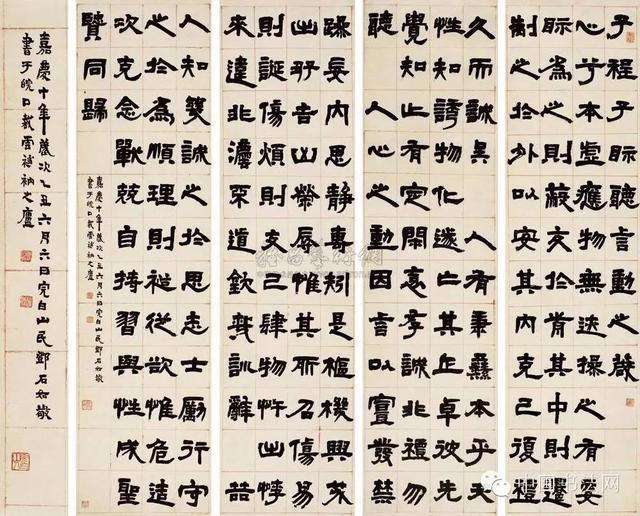 子程子眎聽言動之箴
心兮本虛應物無迹操之有要
眎為之則蔽交於前其中則遷
制之於外以安其內克己復禮
久而誠矣 人有秉彝本乎天
性知誘物化遂亡其正卓彼先
覺知止有定閑邪存誠非禮勿
聽 人心之動因言以宣發禁
躁妄內思靜專矧是樞機興戎
出好吉凶榮辱惟其所召傷易
則誕傷煩則支己肆物忤出悖
來違非灋不道欽哉訓辭 哲
人知幾誠之於思志士勵行守
之於為順理則裕從欲惟危造
次克念戰兢自持習與性成聖
賢同歸
嘉慶十年歲次乙丑六月六日完白山民鄧石如敬
書于皖口載雲補衲之廬
嘉慶十年歲次乙丑六月六日完白山民鄧石如敬
書于皖口載雲補衲之廬
中国书法网